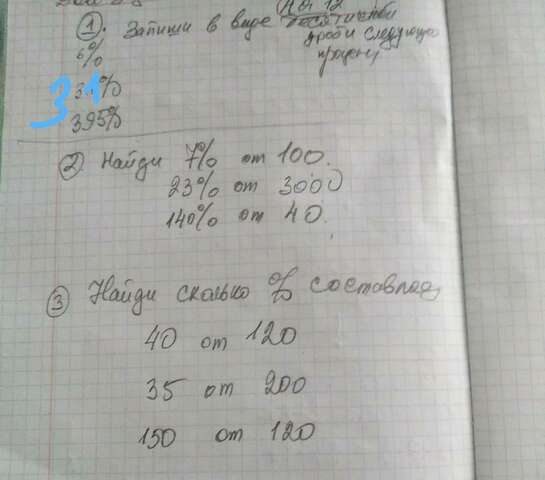 ① Запиши в виде десятичной
дроби следующие
процент
6%
31%
395%
② Найди 7% от 100.
23% от 3000
140% от 40.
③ Найди сколько % составляет
40 от 120
35 от 200
150 от 120